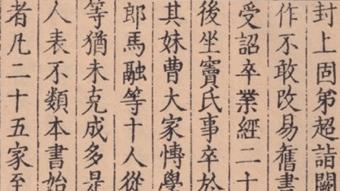 封上固弟超詣闕
作不敢改易舊書
受詔卒業經二十
後坐竇氏事卒於
其妹曹大家博學
郎馬融等十人從
等猶未克成多是
人表不類本書始
者凡二十五家至